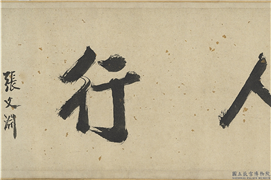 人行
張文淵
國立故宮博物院